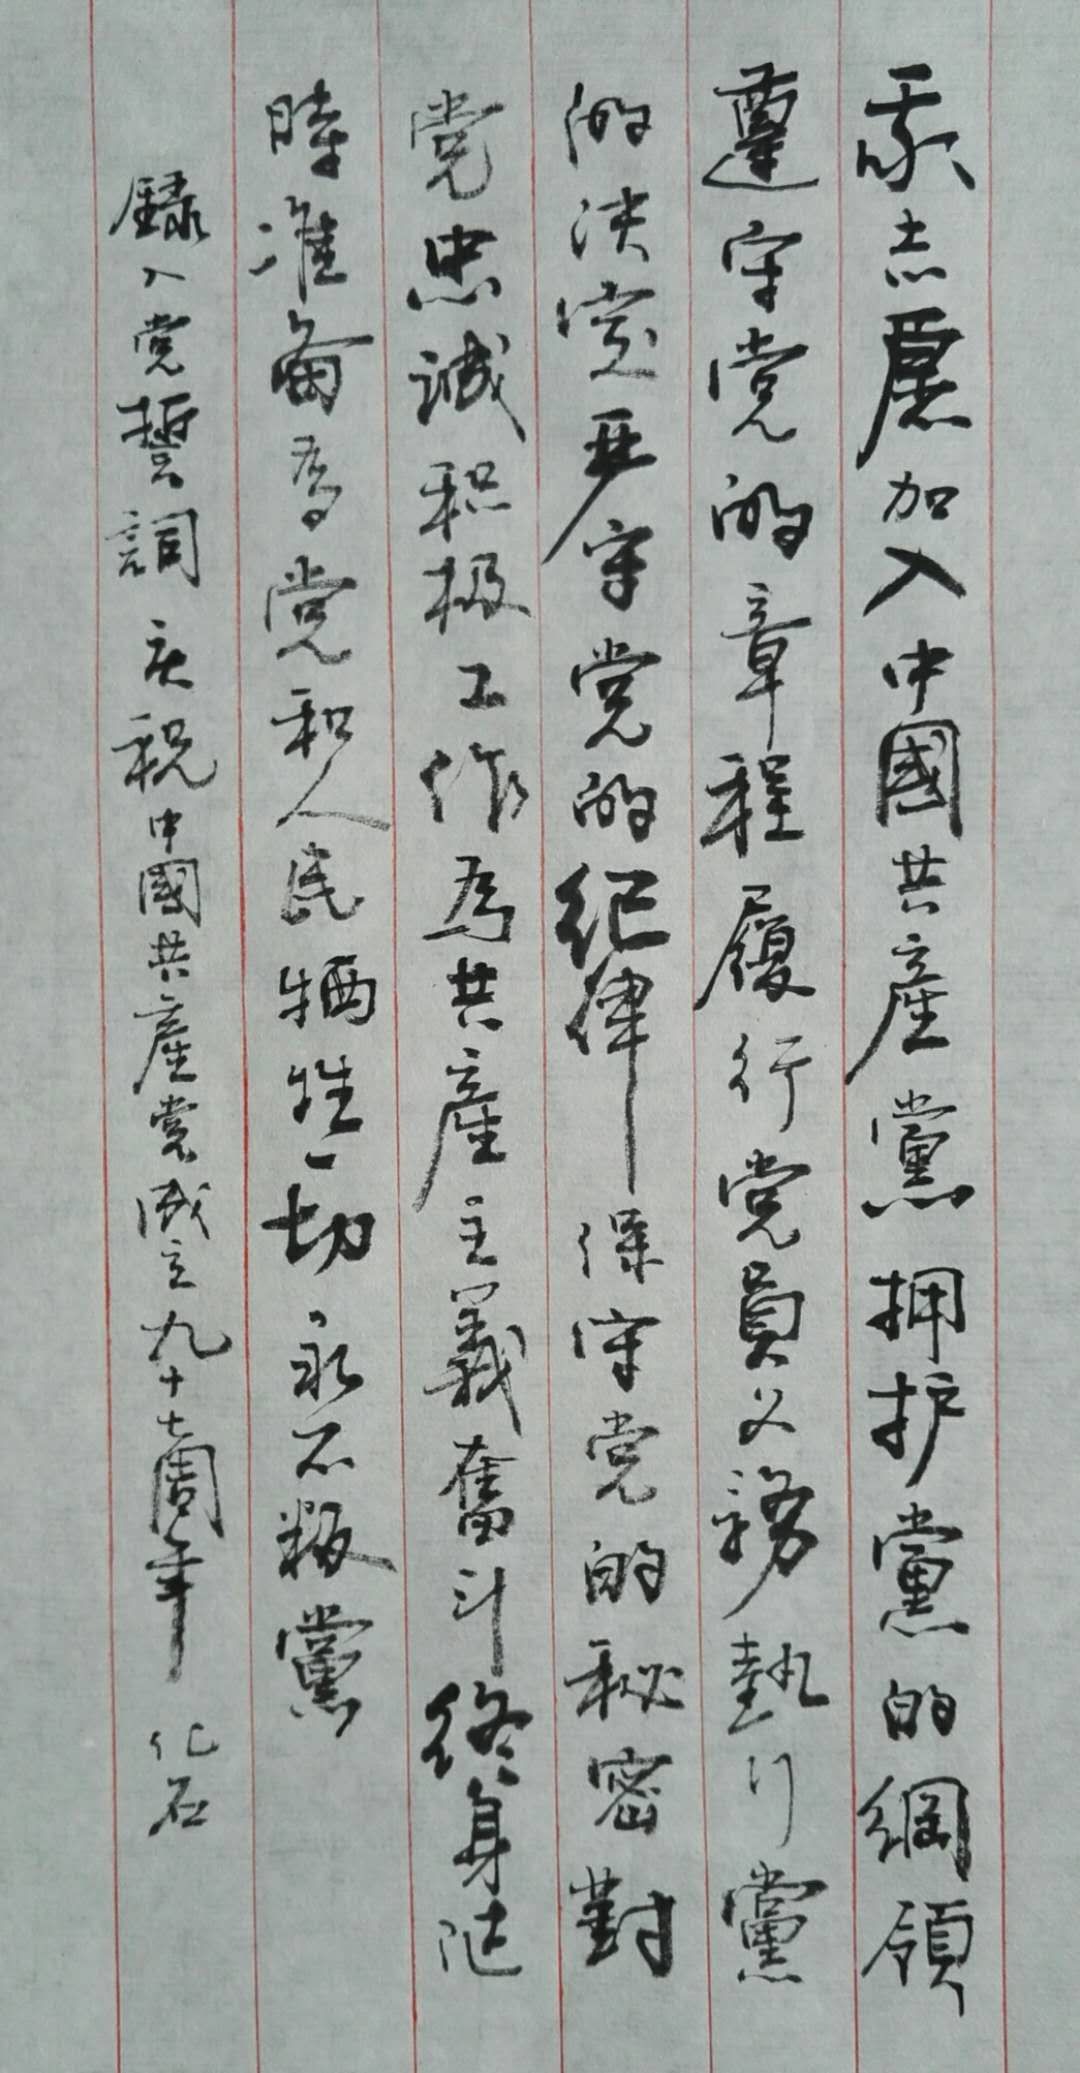 我志愿加入中國共産黨拥护黨的綱領
遵守党的章程履行党员义務執行黨
的决定严守党的纪律保守党的秘密對
党忠诚积极工作为共產主義奮斗终身随
時准备为党和人民牺牲一切永不叛黨
録入党誓詞庆祝中國共產党成立九十七周年 化石